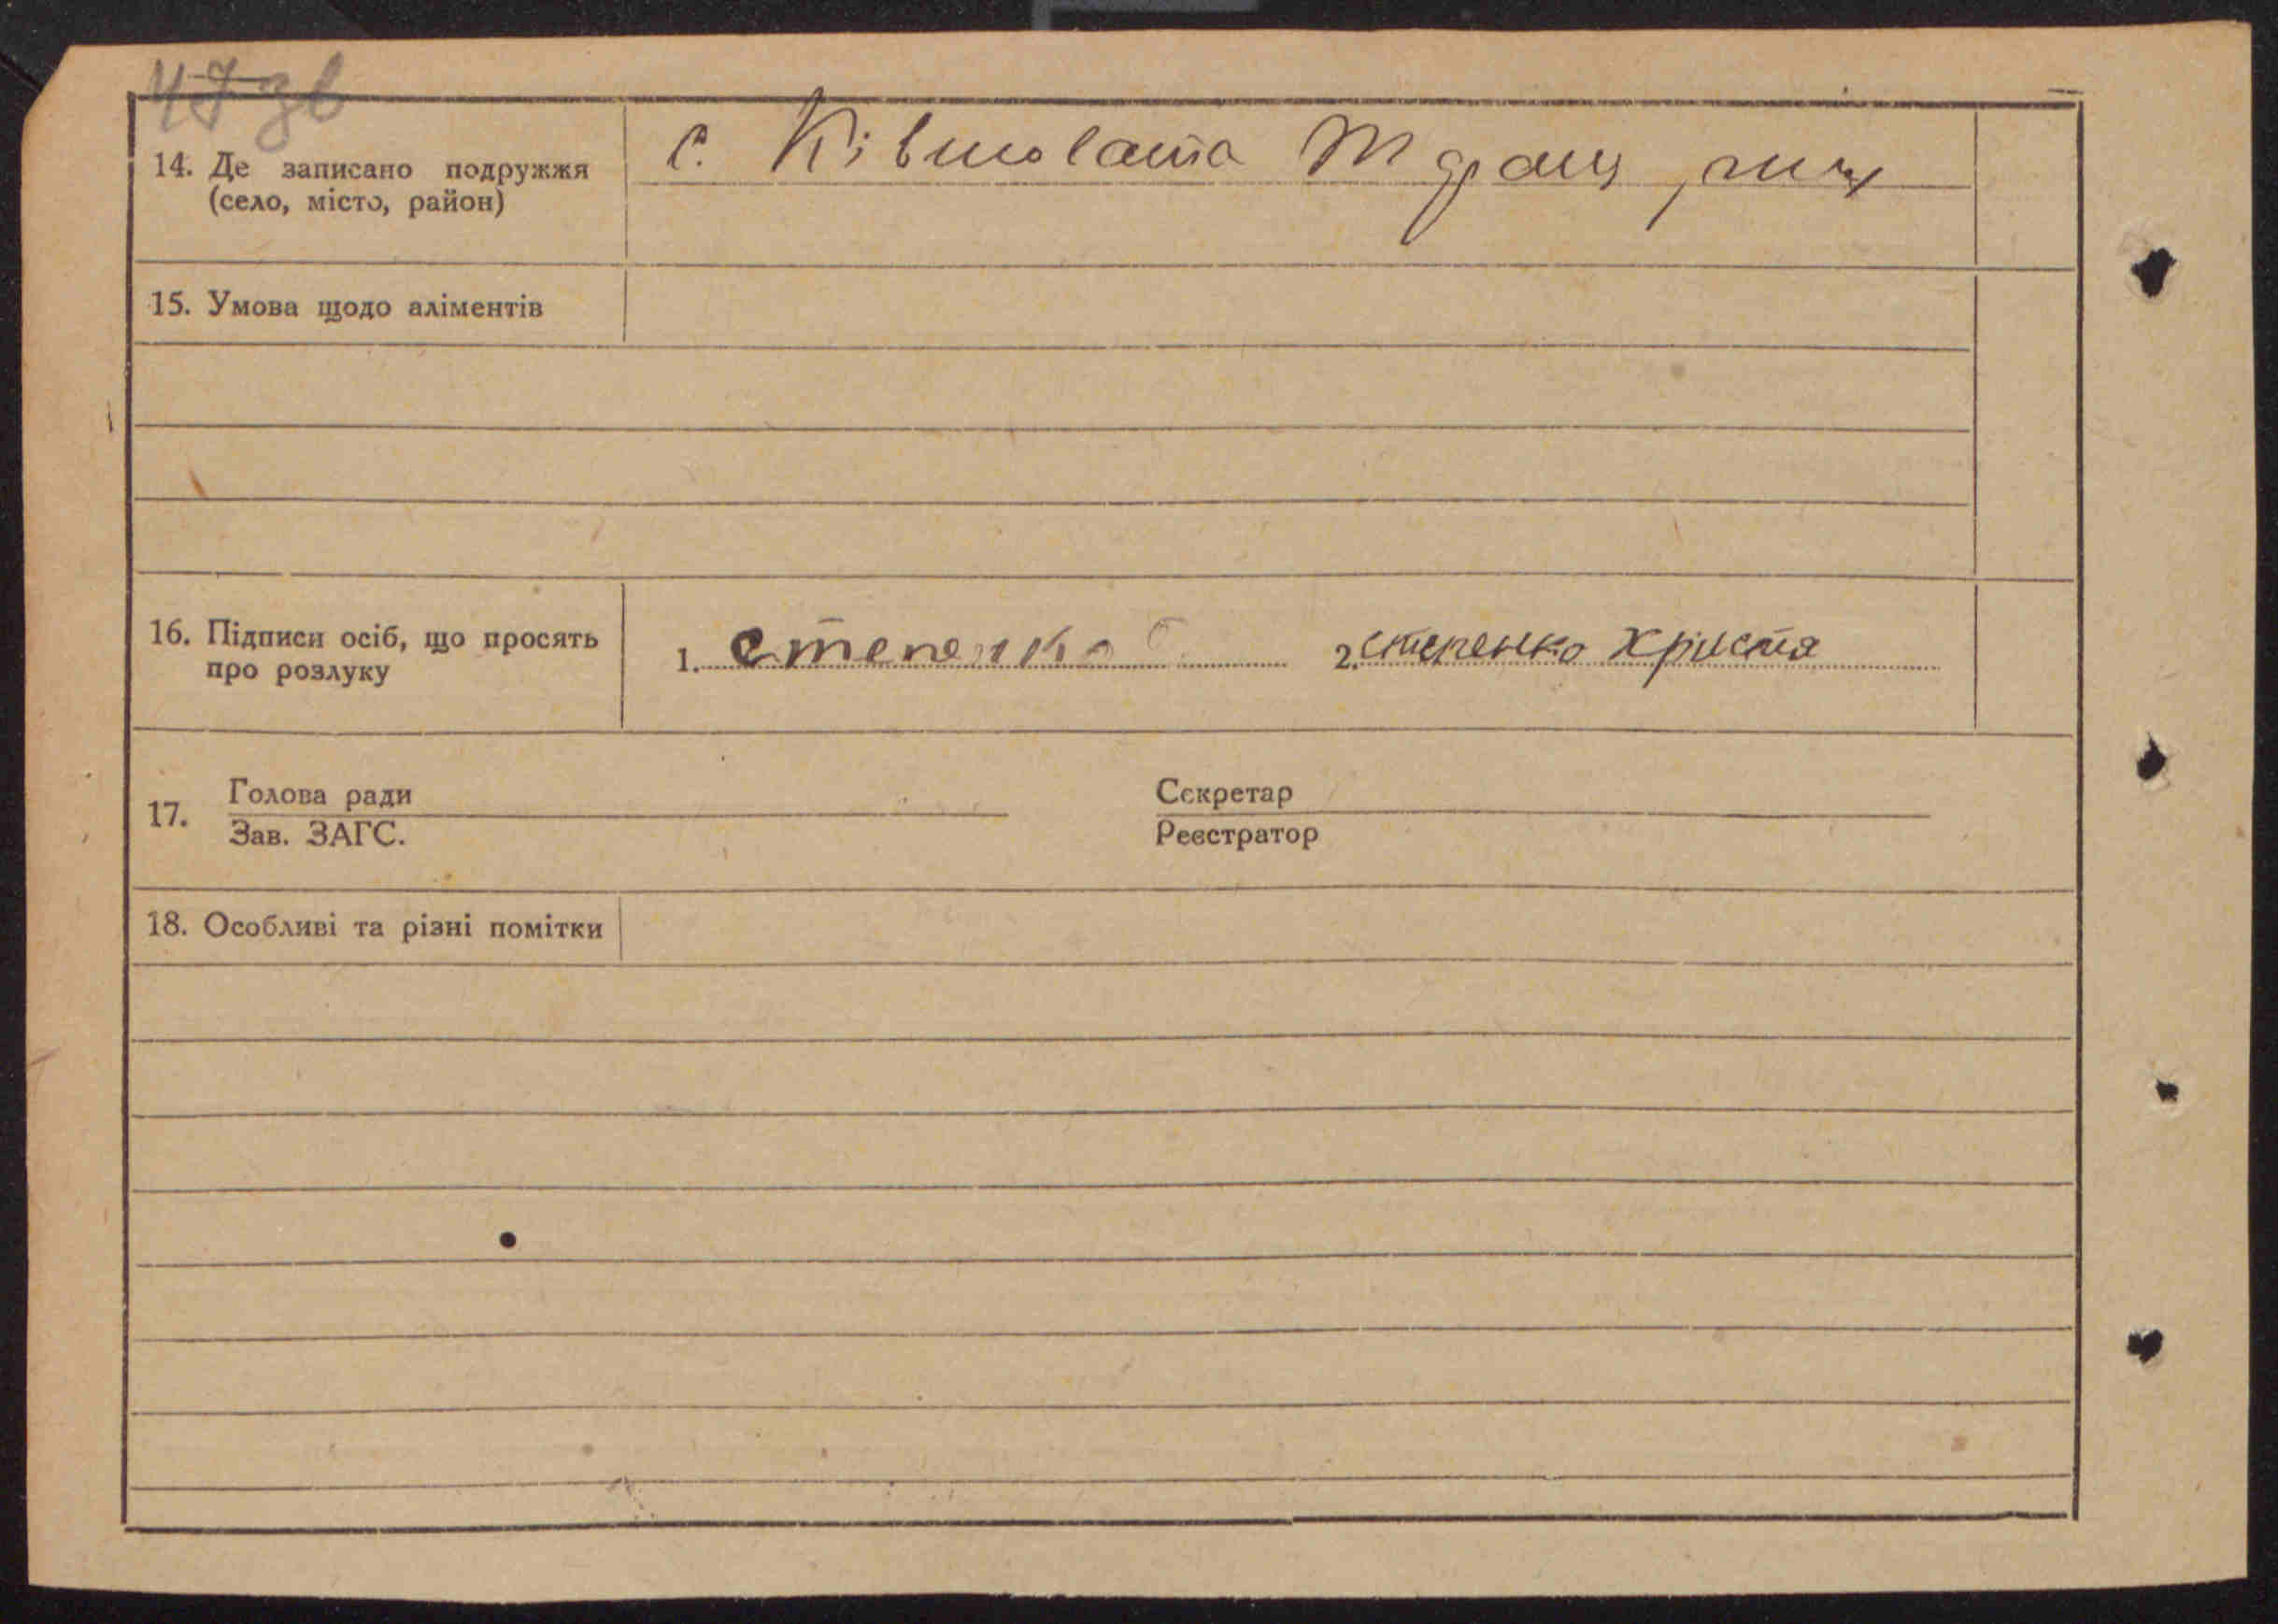 47 зв
14. Де записано подружжя
(село, місто, район)
с. Ківшовата
15. Умова щодо аліментів
16. Підписи осіб, що просять
про розлуку
1. Степенко 2. Степенко Христя
17. Голова ради Секретар
Зав. ЗАГС. Реєстратор
18. Особливі та різні помітки